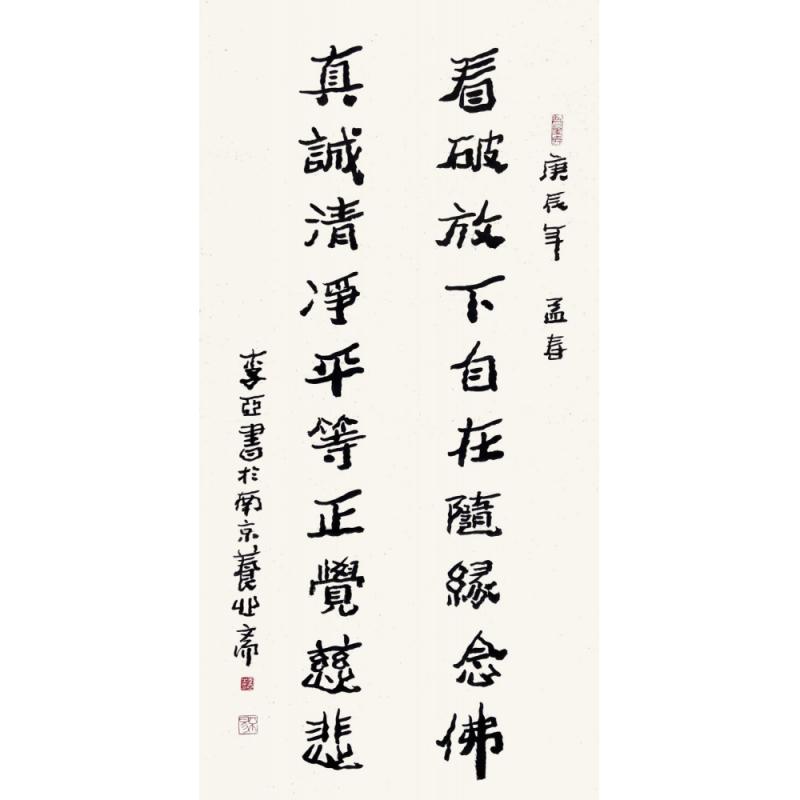 庚辰年 孟春
看破放下自在隨緣念佛
真誠清淨平等正覺慈悲
李亞書於南京養心齋